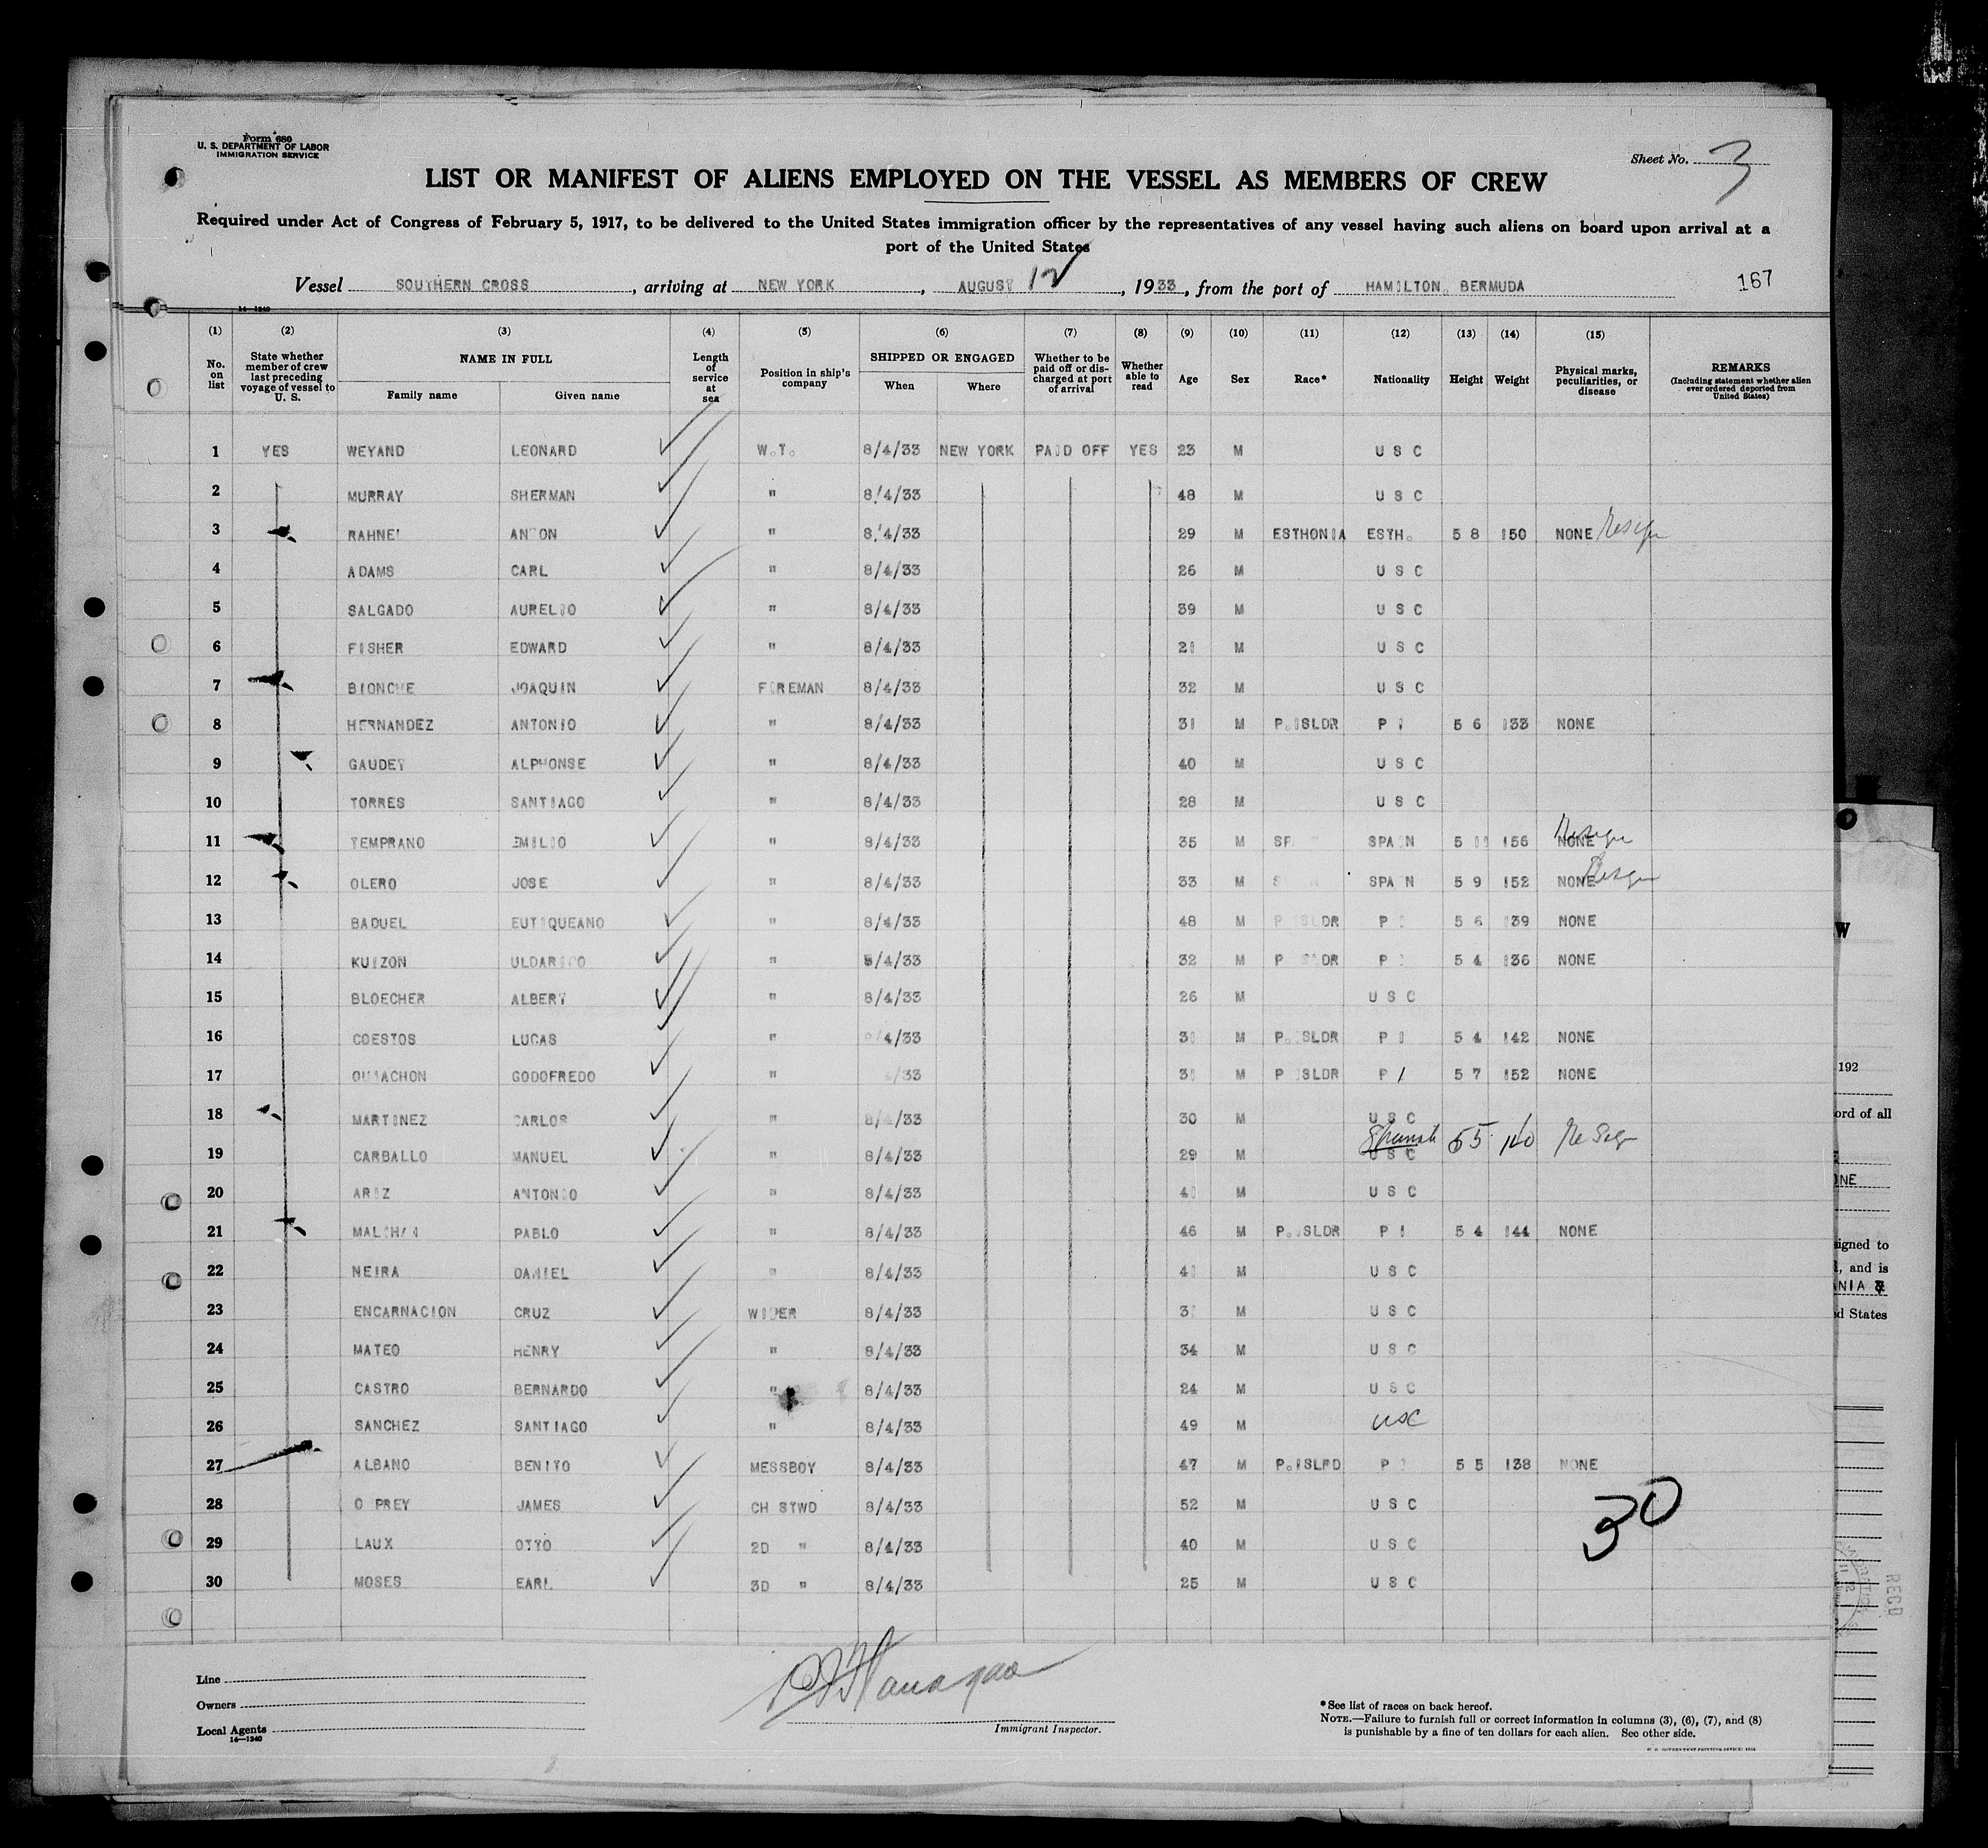 Form 680
U. S. DEPARTMENT OF LABOR
IMMIGRATION SERVICE
Sheet No. 3
LIST OR MANIFEST OF ALIENS EMPLOYED ON THE VESSEL AS MEMBERS OF CREW
Required under Act of Congress of February 5, 1917, to be delivered to the United States immigration officer by the representatives of any vessel having such aliens on board upon arrival at a
port of the United States
Vessel SOUTHERN CROSS, arriving at NEW YORK, AUGUST 12, 1933, from the port of HAMILTON. BERMUDA 167
14—1240
(1) (2) (3) (4) (5) (6) (7) (8) (9) (10) (11) (12) (13) (14) (15)
No. on list State whether member of crew last preceding voyage of vessel to U. S. NAME IN FULL Family name Given name Length of service at sea Position in ship's company SHIPPED OR ENGAGED When Where Whether to be paid off or discharged at port of arrival Whether able to read Age Sex Race* Nationality Height Weight Physical marks, peculiarities, or disease REMARKS (Including statement whether alien ever ordered deported from United States)
1 YES WEYAND LEONARD W.T. 8/4/33 NEW YORK PAID OFF YES 23 M U S C
2 MURRAY SHERMAN " 8/4/33 48 M U S C
3 ANTON " 8/4/33 29 M ESTHONIA ESTH. 5 8 150 NONE
4 ADAMS CARL " 8/4/33 26 M U S C
5 SALGADO AURELIO " 8/4/33 39 M U S C
6 FISHER EDWARD " 8/4/33 21 M U S C
7 JOAQUIN FIREMAN 8/4/33 32 M U S C
8 HERNANDEZ ANTONIO " 8/4/33 31 M P.ISLDR P I 5 6 133 NONE
9 GAUDET ALPHONSE " 8/4/33 40 M U S C
10 TORRES SANTIAGO " 8/4/33 28 M U S C
11 TEMPRANO EMILIO " 8/4/33 35 M SPAIN 5 156 NONE
12 OLERO JOSE " 8/4/33 33 M SPAIN 5 9 152 NONE
13 BADUEL EUTIQUEANO " 8/4/33 48 M P ISLDR P I 5 6 139 NONE
14 KUIZON ULDARICO " 8/4/33 32 M P ISLDR P I 5 4 136 NONE
15 BLOECHER ALBERT " 8/4/33 26 M U S C
16 COESTOS LUCAS " 8/4/33 31 M P.ISLDR P I 5 4 142 NONE
17 GODOFREDO " 31 M P ISLDR P I 5 7 152 NONE
18 MARTINEZ CARLOS " 8/4/33 30 M U S C
19 CARBALLO MANUEL " 8/4/33 29 M U S C Spanish 5 5 140
20 ARIZ ANTONIO " 8/4/33 41 M U S C
21 PABLO " 8/4/33 46 M P.ISLDR P I 5 4 144 NONE
22 NEIRA DANIEL " 8/4/33 41 M U S C
23 ENCARNACION CRUZ WIPER 8/4/33 31 M U S C
24 MATEO HENRY " 8/4/33 34 M U S C
25 CASTRO BERNARDO " 8/4/33 24 M U S C
26 SANCHEZ SANTIAGO " 8/4/33 49 M USC
27 ALBANO BENITO MESSBOY 8/4/33 47 M P.ISLRD P I 5 5 138 NONE
28 O PREY JAMES CH STWD 8/4/33 52 M U S C
29 LAUX OTTO 2D " 8/4/33 40 M U S C
30 MOSES EARL 3D " 8/4/33 25 M U S C
30
Line
Owners
Local Agents
14—1240
Immigrant Inspector.
*See list of races on back hereof.
NOTE.—Failure to furnish full or correct information in columns (3), (6), (7), and (8)
is punishable by a fine of ten dollars for each alien. See other side.
W
192
ord of all
NE
signed to
, and is
NIA &
d States
RECD